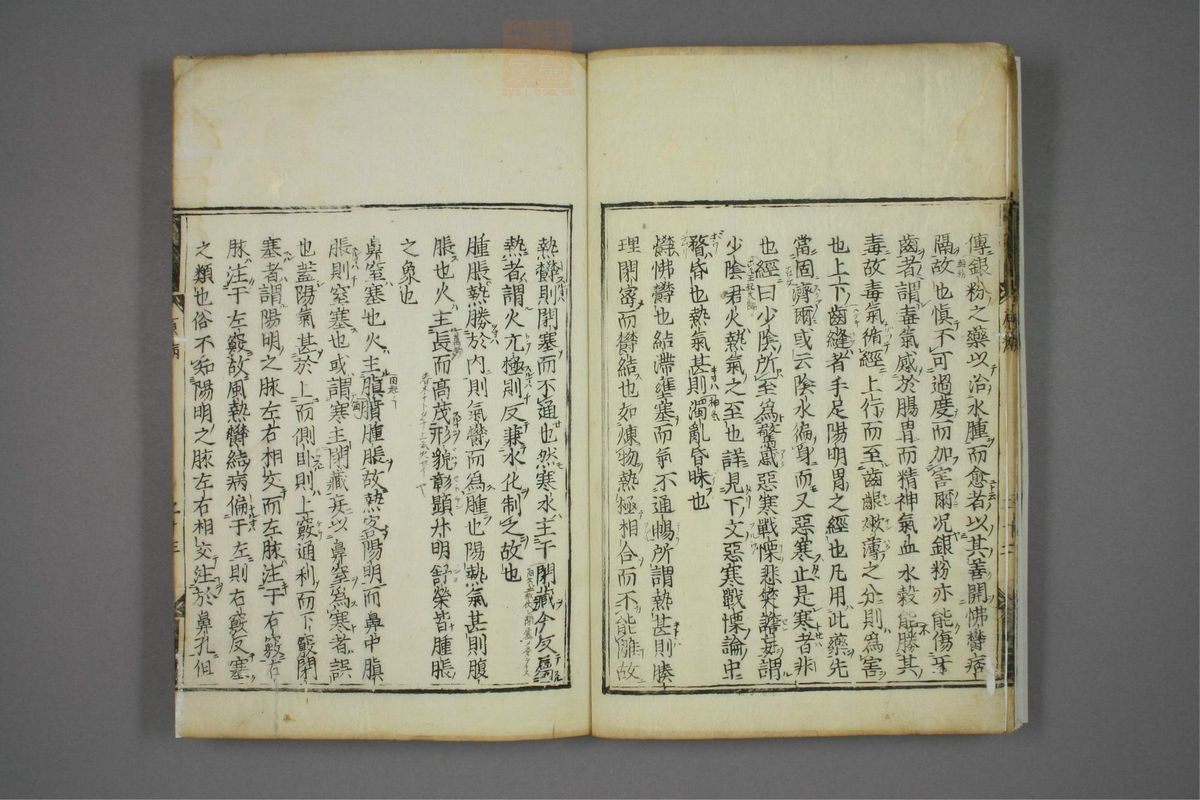 傳銀粉之藥以治水腫而愈者以其善開怫鬱痞
隔故也慎不可過度而加害爾况銀粉亦能傷牙
齒者謂毒氣感於腸胃而精神氣血水穀能勝其
毒故毒氣循經上行而至齒齦嫩薄之分則為害
也上下齒縫者手足陽明胃之經也凡用此藥先
當固濟爾或云陰水徧身而又惡寒止是寒者非
也經曰少陰所至為驚惑惡寒戰慄悲笑譫妄謂
少陰君火熱氣之至也詳見下文惡寒戰慄論中
瞀昏也熱氣甚則濁亂昏昧也
鬱怫鬱也結滯壅塞而氣不通暢所謂熱甚則腠
理閉密而鬱結也如煉物熱極相合而不能離故
熱鬱則閉塞而不通也然寒水主于閉藏今反屬
熱者謂火亢極則反兼水化制之故也
腫脹熱勝於內則氣鬱而為腫也陽熱氣甚則腹
脹也火主長而高茂形貌彰顯升明舒榮皆腫脹
之象也
鼻窒窒塞也火主膹䐜腫脹故熱客陽明而鼻中䐜
脹則窒塞也或謂寒主閉藏妄以鼻窒為寒者誤
也蓋陽氣甚於上而側卧則上竅通利而下竅閉
塞者謂陽明之脉左右相交而左脉注于右竅右
脉注于左竅故風熱鬱結病偏于左則右竅反塞
之類也俗不知陽明之脉左右相交注於鼻孔但
原病